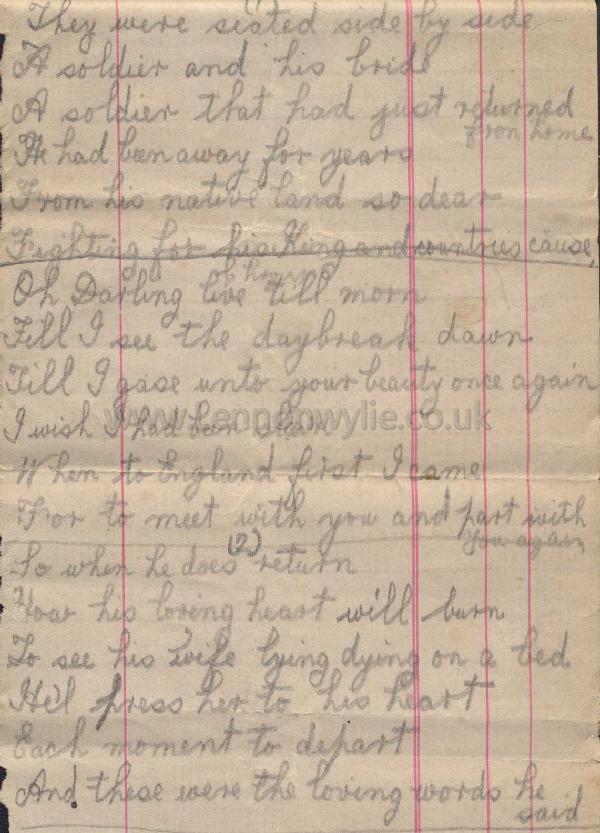 They were seated side by side
A soldier and his bride
A soldier that had just returned
from home
He had been away for years
From his native land so dear
Fighting for his King and countries cause,
Oh Darling live till morn
Till I see the daybreak dawn
Till I gase unto your beauty once again
www.kennonwylie.co.uk
I wish I had been slain
When to England first I came
For to meet with you and part with
you again
(2)
So when he does return
How his loving heart will burn
To see his wife lying dying on a bed
He'l press her to his heart
Each moment to depart
And these were the loving words he
said